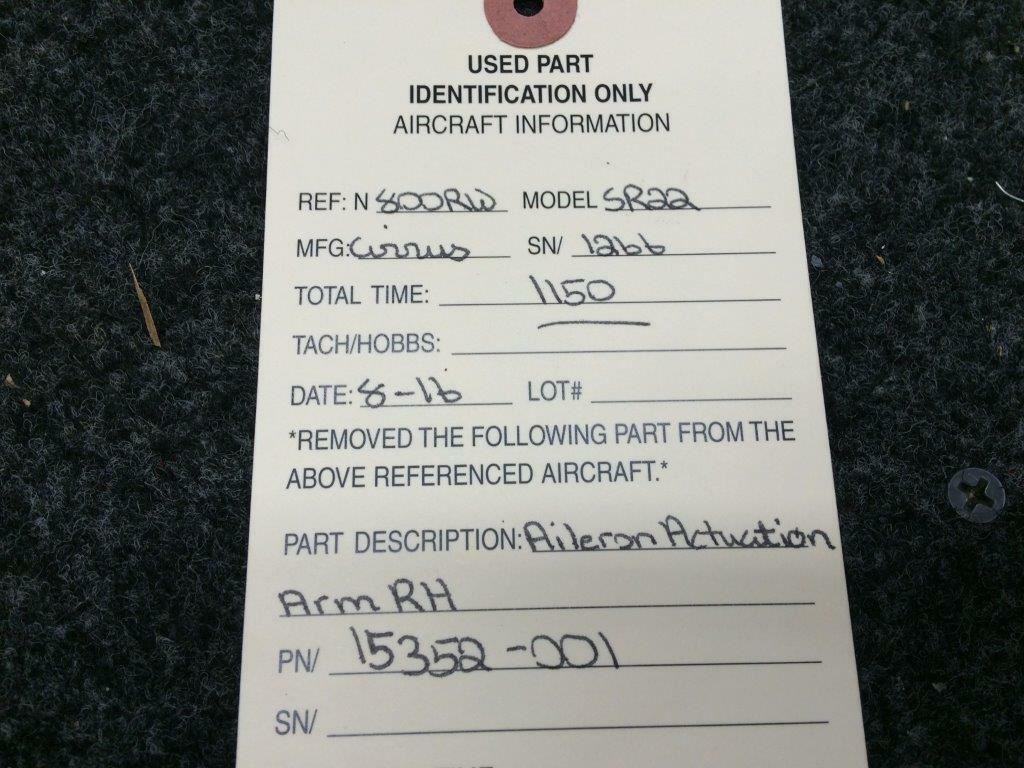 USED PART
IDENTIFICATION ONLY
AIRCRAFT INFORMATION
REF: N 800RW MODEL SR22
MFG: Cirrus SN/ 1266
TOTAL TIME: 1150
TACH/HOBBS:
DATE: 8-16 LOT#
*REMOVED THE FOLLOWING PART FROM THE
ABOVE REFERENCED AIRCRAFT.*
PART DESCRIPTION: Aileron Actuation
Arm RH
PN/ 15352-001
SN/